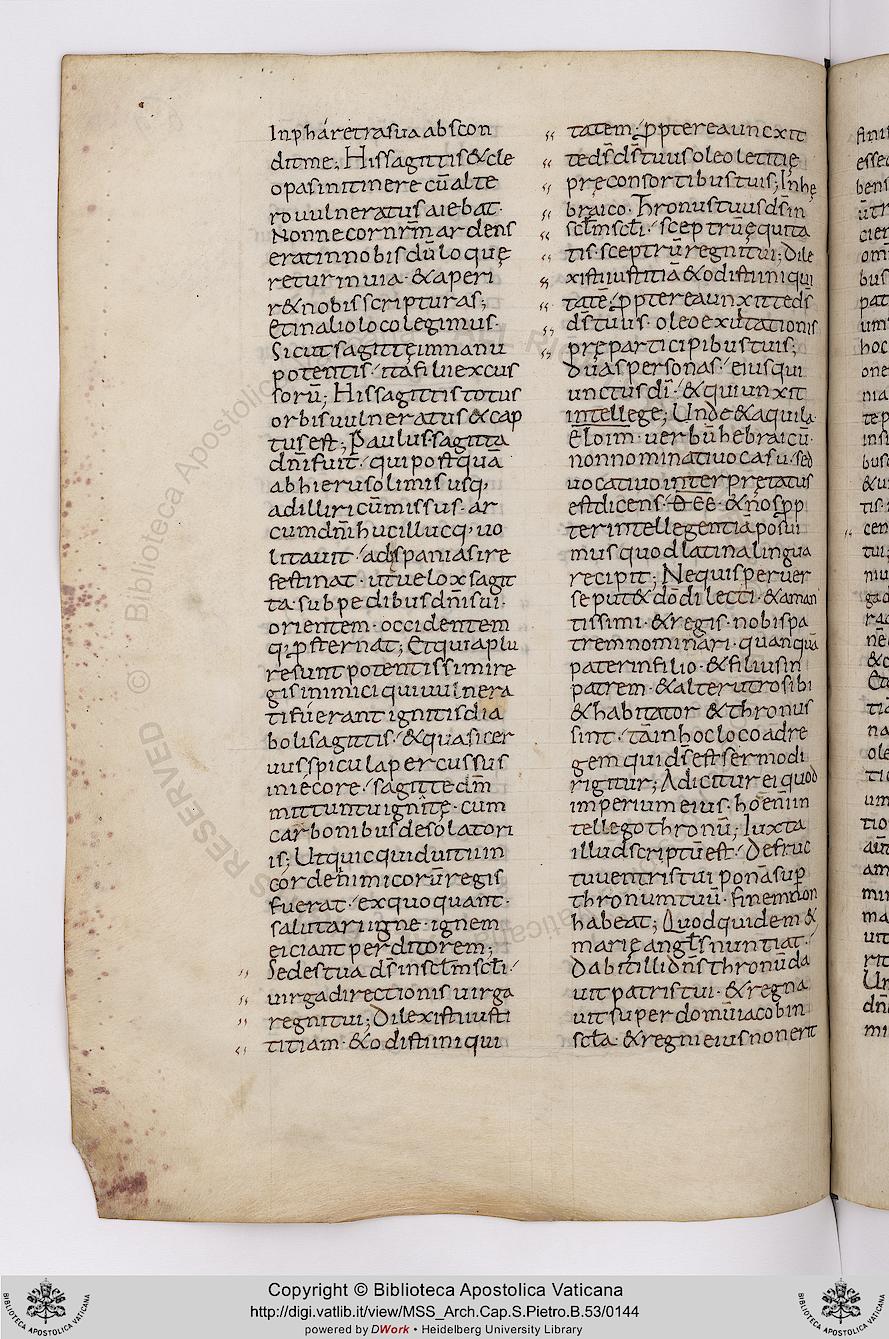 In pharetra sua abscon
dit me; His sagittis & cle
opas in itinere cū alte
ro uulneratus aiebat·
Nonne cor nr̄m ardens
erat in nobis dū loquę
retur in uia· & aperi
r& nobis scripturas;
Et in alio loco legimus·
Sicut sagittę in manu
potentis· ita filii excus
sorū; His sagittis totus
orbis uulneratus & cap
tus est; Paulus sagitta
dn̄i fuit· qui postquā
ab hierusolimis usq;
ad illiricū missus· ar
cum dn̄i huc illucq; uo
litauit· ad spanias ire
festinat· ut uelox sagit
ta· sub pedibus dn̄i sui·
orientem· occidentem
q; psternat; Et quia plu
res sunt potentissimi re
gis inimici qui uulnera
ti fuerant ignitis dia
boli sagittis· & quasi cer
uus spicula percussus
in iecore· sagitte dn̄i
mittuntur ignitę· cum
carbonibus desolatori
is; Ut quicquid uitii in
corde inimicorū regis
fuerat· exquoquant·
salutari igne· ignem
eiciant perditorem;
Sedes tua d̄s in scl̄m scl̄i·
uirga directionis uirga
regni tui; Dilexisti iusti
titiam· & odisti iniqui
tatem· ppterea uncxit
te d̄s d̄s tuus oleo letitię
prę consortibus tuis; In hę
braico· Thronus tuus d̄s in
scl̄m scl̄i· sceptrū ęquita
tis· sceptrū regni tui; Dile
xisti iustitiā & odisti iniqui
tatē· ppterea unxit te d̄s
d̄s tuus· oleo exultationis
prę participibus tuis;
Duas personas· eius qui
unctus d̄i· & qui unxit
intellege; Unde & aquila·
Eloim· uerbū hebraicū·
non nominatiuo casu· sed
uocatiuo interpretatus
est dicens· Ð EE· & nos pp
ter intellegentiā posui
mus quod latina lingua
recipit; Ne quis peruer
se put& dō dilecti· & aman
tissimi· & regis· nobis pa
trem nominari· quanquā
pater in filio· & filius in
patrem· & alterutro sibi
& habitator & thronus
sint· tā in hoc loco ad re
gem qui d̄s est sermo di
rigitur; Adicitur ei quod
imperium eius· hō en̄ in
tellego thronū; Iuxta
illud scriptū est· De fruc
tu uentris tui ponā sup
thronum tuū· finem non
habeat; Quod quidem &
marię angls nuntiat·
Dabit illi dn̄s thronū da
uit patris tui· & regna
uit super domū iacob in
scl̄a· & regni eius non erit
Copyright © Biblioteca Apostolica Vaticana
http://digi.vatlib.it/view/MSS_Arch.Cap.S.Pietro.B.53/0144
powered by DWork • Heidelberg University Library